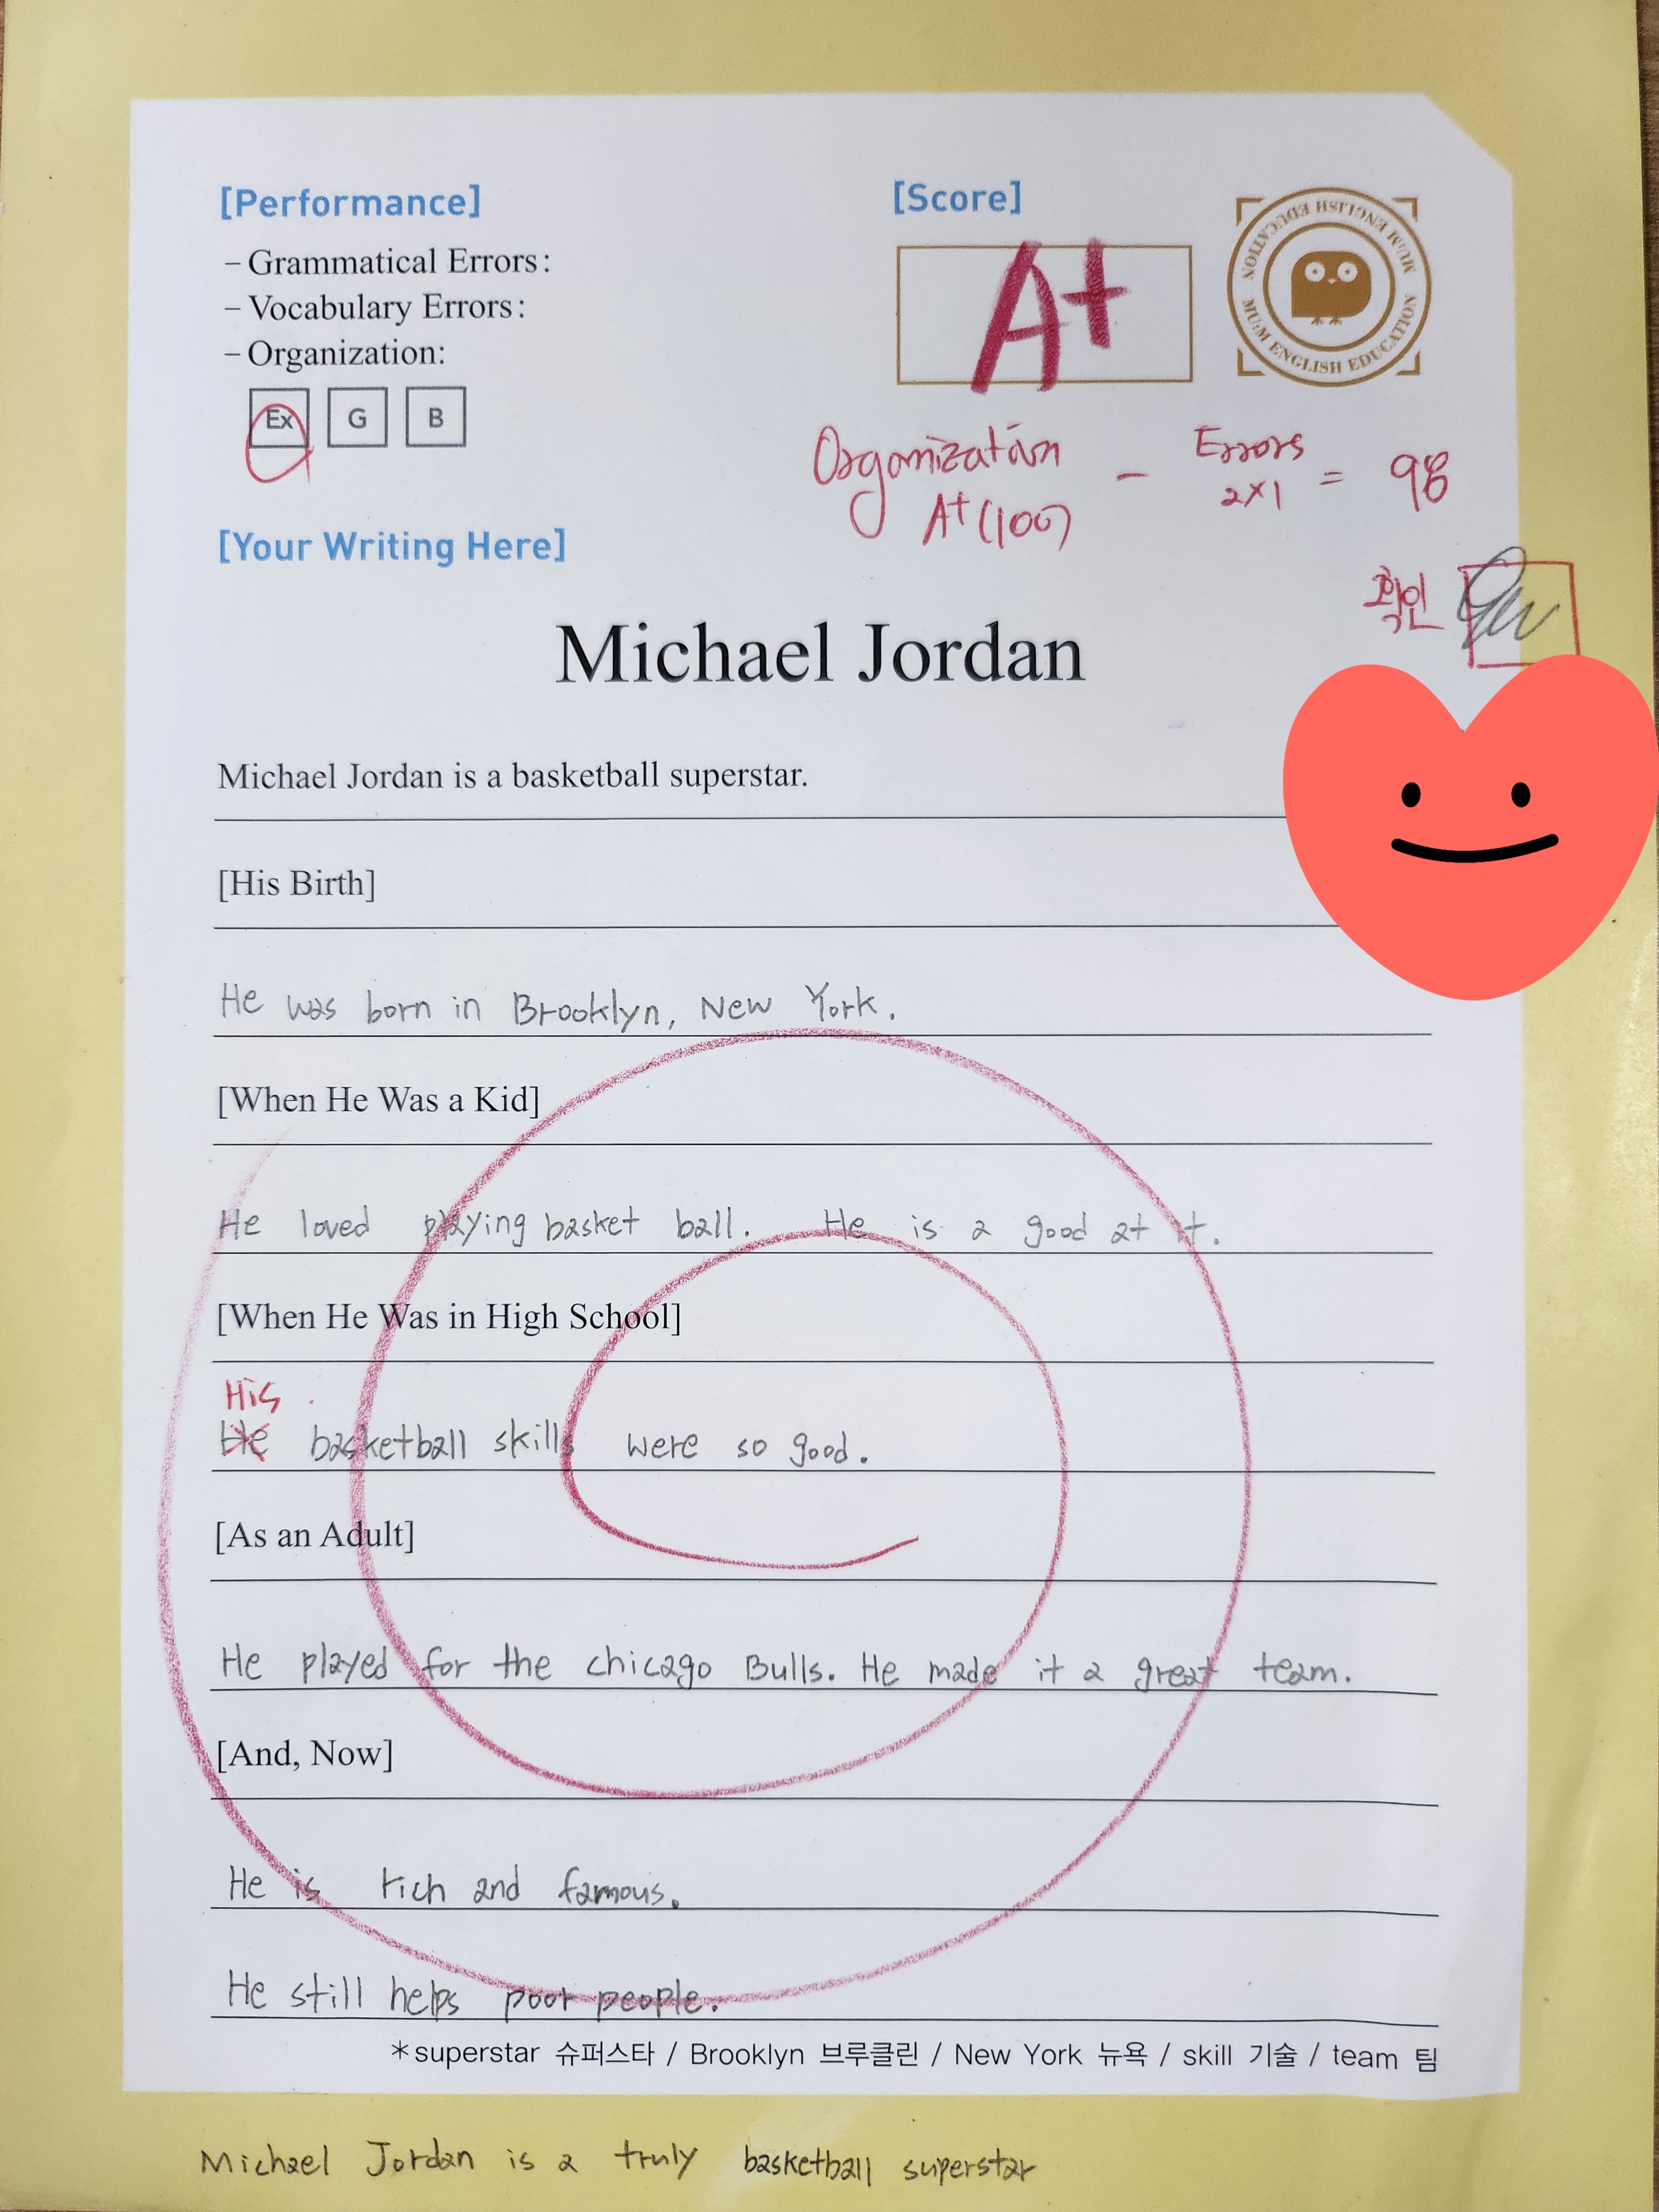 [Performance]
– Grammatical Errors:
– Vocabulary Errors:
– Organization:
Ex G B
[Score]
A+
MU:M ENGLISH EDUCATION MU:M ENGLISH EDUCATION
Organization - Errors = 98
A+ (100) 2x1
확인
[Your Writing Here]
Michael Jordan
Michael Jordan is a basketball superstar.
[His Birth]
He was born in Brooklyn, New York.
[When He Was a Kid]
He loved playing basket ball. He is a good at it.
[When He Was in High School]
His
He basketball skills were so good.
[As an Adult]
He played for the chicago Bulls. He made it a great team.
[And, Now]
He is rich and famous.
He still helps poor people.
*superstar 슈퍼스타 / Brooklyn 브루클린 / New York 뉴욕 / skill 기술 / team 팀
Michael Jordan is a truly basketball superstar